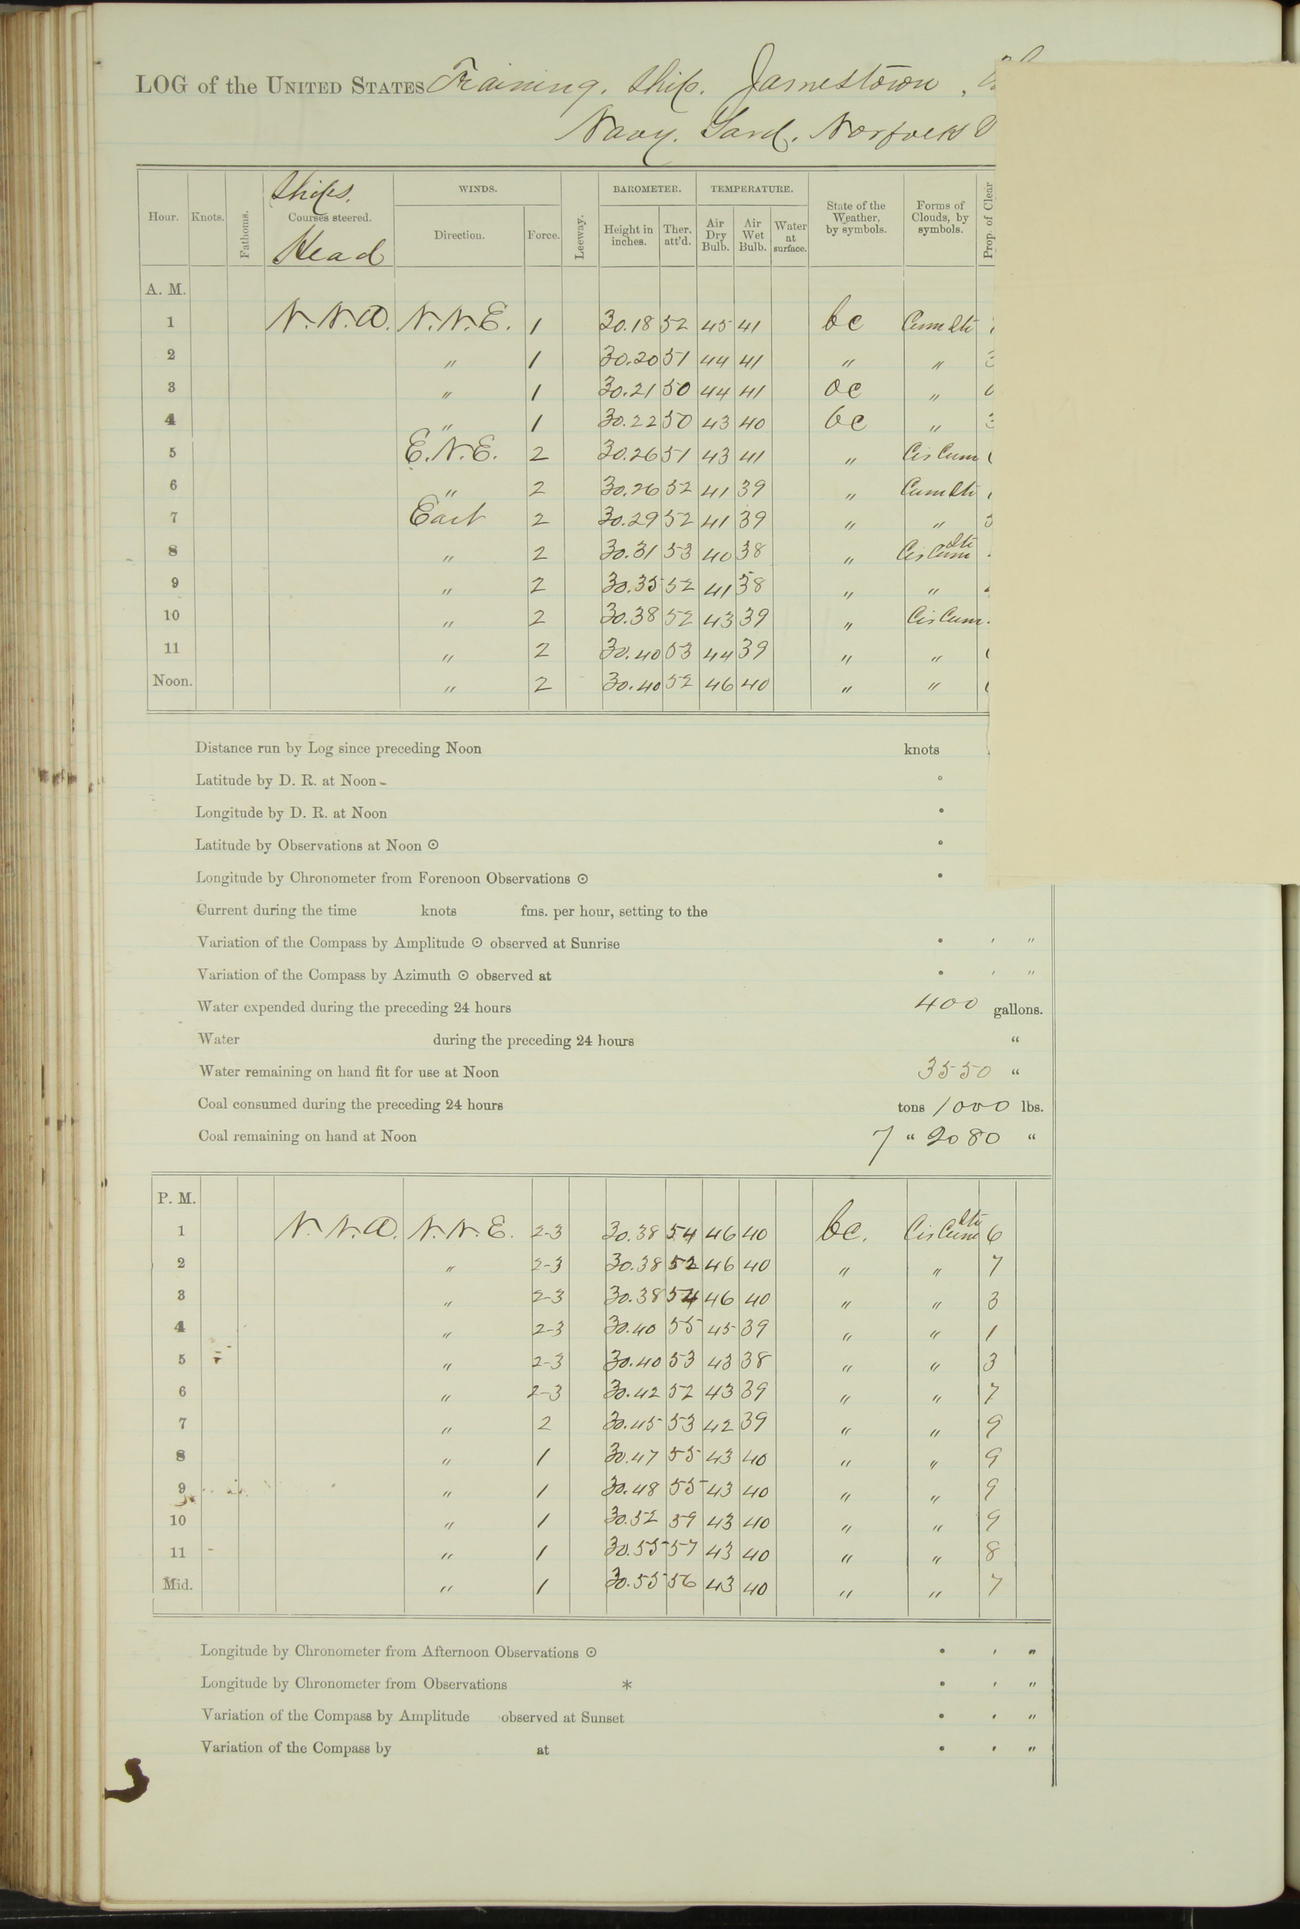 LOG of the UNITED STATES Training. Ship. Jamestown,
Navy. Yard. Norfolk
Hour. Knots. Fathoms. Ships. Courses steered. Head WINDS. Direction. Force. Leeway. BAROMETER. Height in inches. Ther. att'd. TEMPERATURE. Air Dry Bulb. Air Wet Bulb. Water at surface. State of the Weather, by symbols. Forms of Clouds, by symbols. Prop. of Clear
A. M.
1 N.N.W. N.N.E. 1 30.18 52 45 41 bc Cum Sti
2 " 1 30.20 51 44 41 " "
3 " 1 30.21 50 44 41 oc "
4 " 1 30.22 50 43 40 bc "
5 E.N.E. 2 30.26 51 43 41 " Cir Cum
6 " 2 30.26 52 41 39 " Cum Sti
7 East 2 30.29 52 41 39 " "
8 " 2 30.31 53 40 38 " Cir Cum Sti
9 " 2 30.35 52 41 38 " "
10 " 2 30.38 52 43 39 " Cir Cum.
11 " 2 30.40 53 44 39 " "
Noon. " 2 30.40 52 46 40 " "
Distance run by Log since preceding Noon knots
Latitude by D. R. at Noon - °
Longitude by D. R. at Noon °
Latitude by Observations at Noon ⊙ °
Longitude by Chronometer from Forenoon Observations ⊙ °
Current during the time knots fms. per hour, setting to the
Variation of the Compass by Amplitude ⊙ observed at Sunrise ° ' "
Variation of the Compass by Azimuth ⊙ observed at ° ' "
Water expended during the preceding 24 hours 400 gallons.
Water during the preceding 24 hours "
Water remaining on hand fit for use at Noon 3550 "
Coal consumed during the preceding 24 hours tons 1000 lbs.
Coal remaining on hand at Noon 7 " 2080 "
P. M.
1 N.N.W. N.N.E. 2-3 30.38 54 46 40 bc. Cir Cum Sti 6
2 " 2-3 30.38 52 46 40 " " 7
3 " 2-3 30.38 54 46 40 " " 3
4 " 2-3 30.40 55 45 39 " " 1
5 " 2-3 30.40 53 43 38 " " 3
6 " 2-3 30.42 52 43 39 " " 7
7 " 2 30.45 53 42 39 " " 9
8 " 1 30.47 55 43 40 " " 9
9 " 1 30.48 55 43 40 " " 9
10 " 1 30.52 59 43 40 " " 9
11 " 1 30.55 57 43 40 " " 8
Mid. " 1 30.55 56 43 40 " " 7
Longitude by Chronometer from Afternoon Observations ⊙ ° ' "
Longitude by Chronometer from Observations * ° ' "
Variation of the Compass by Amplitude observed at Sunset ° ' "
Variation of the Compass by at ° ' "